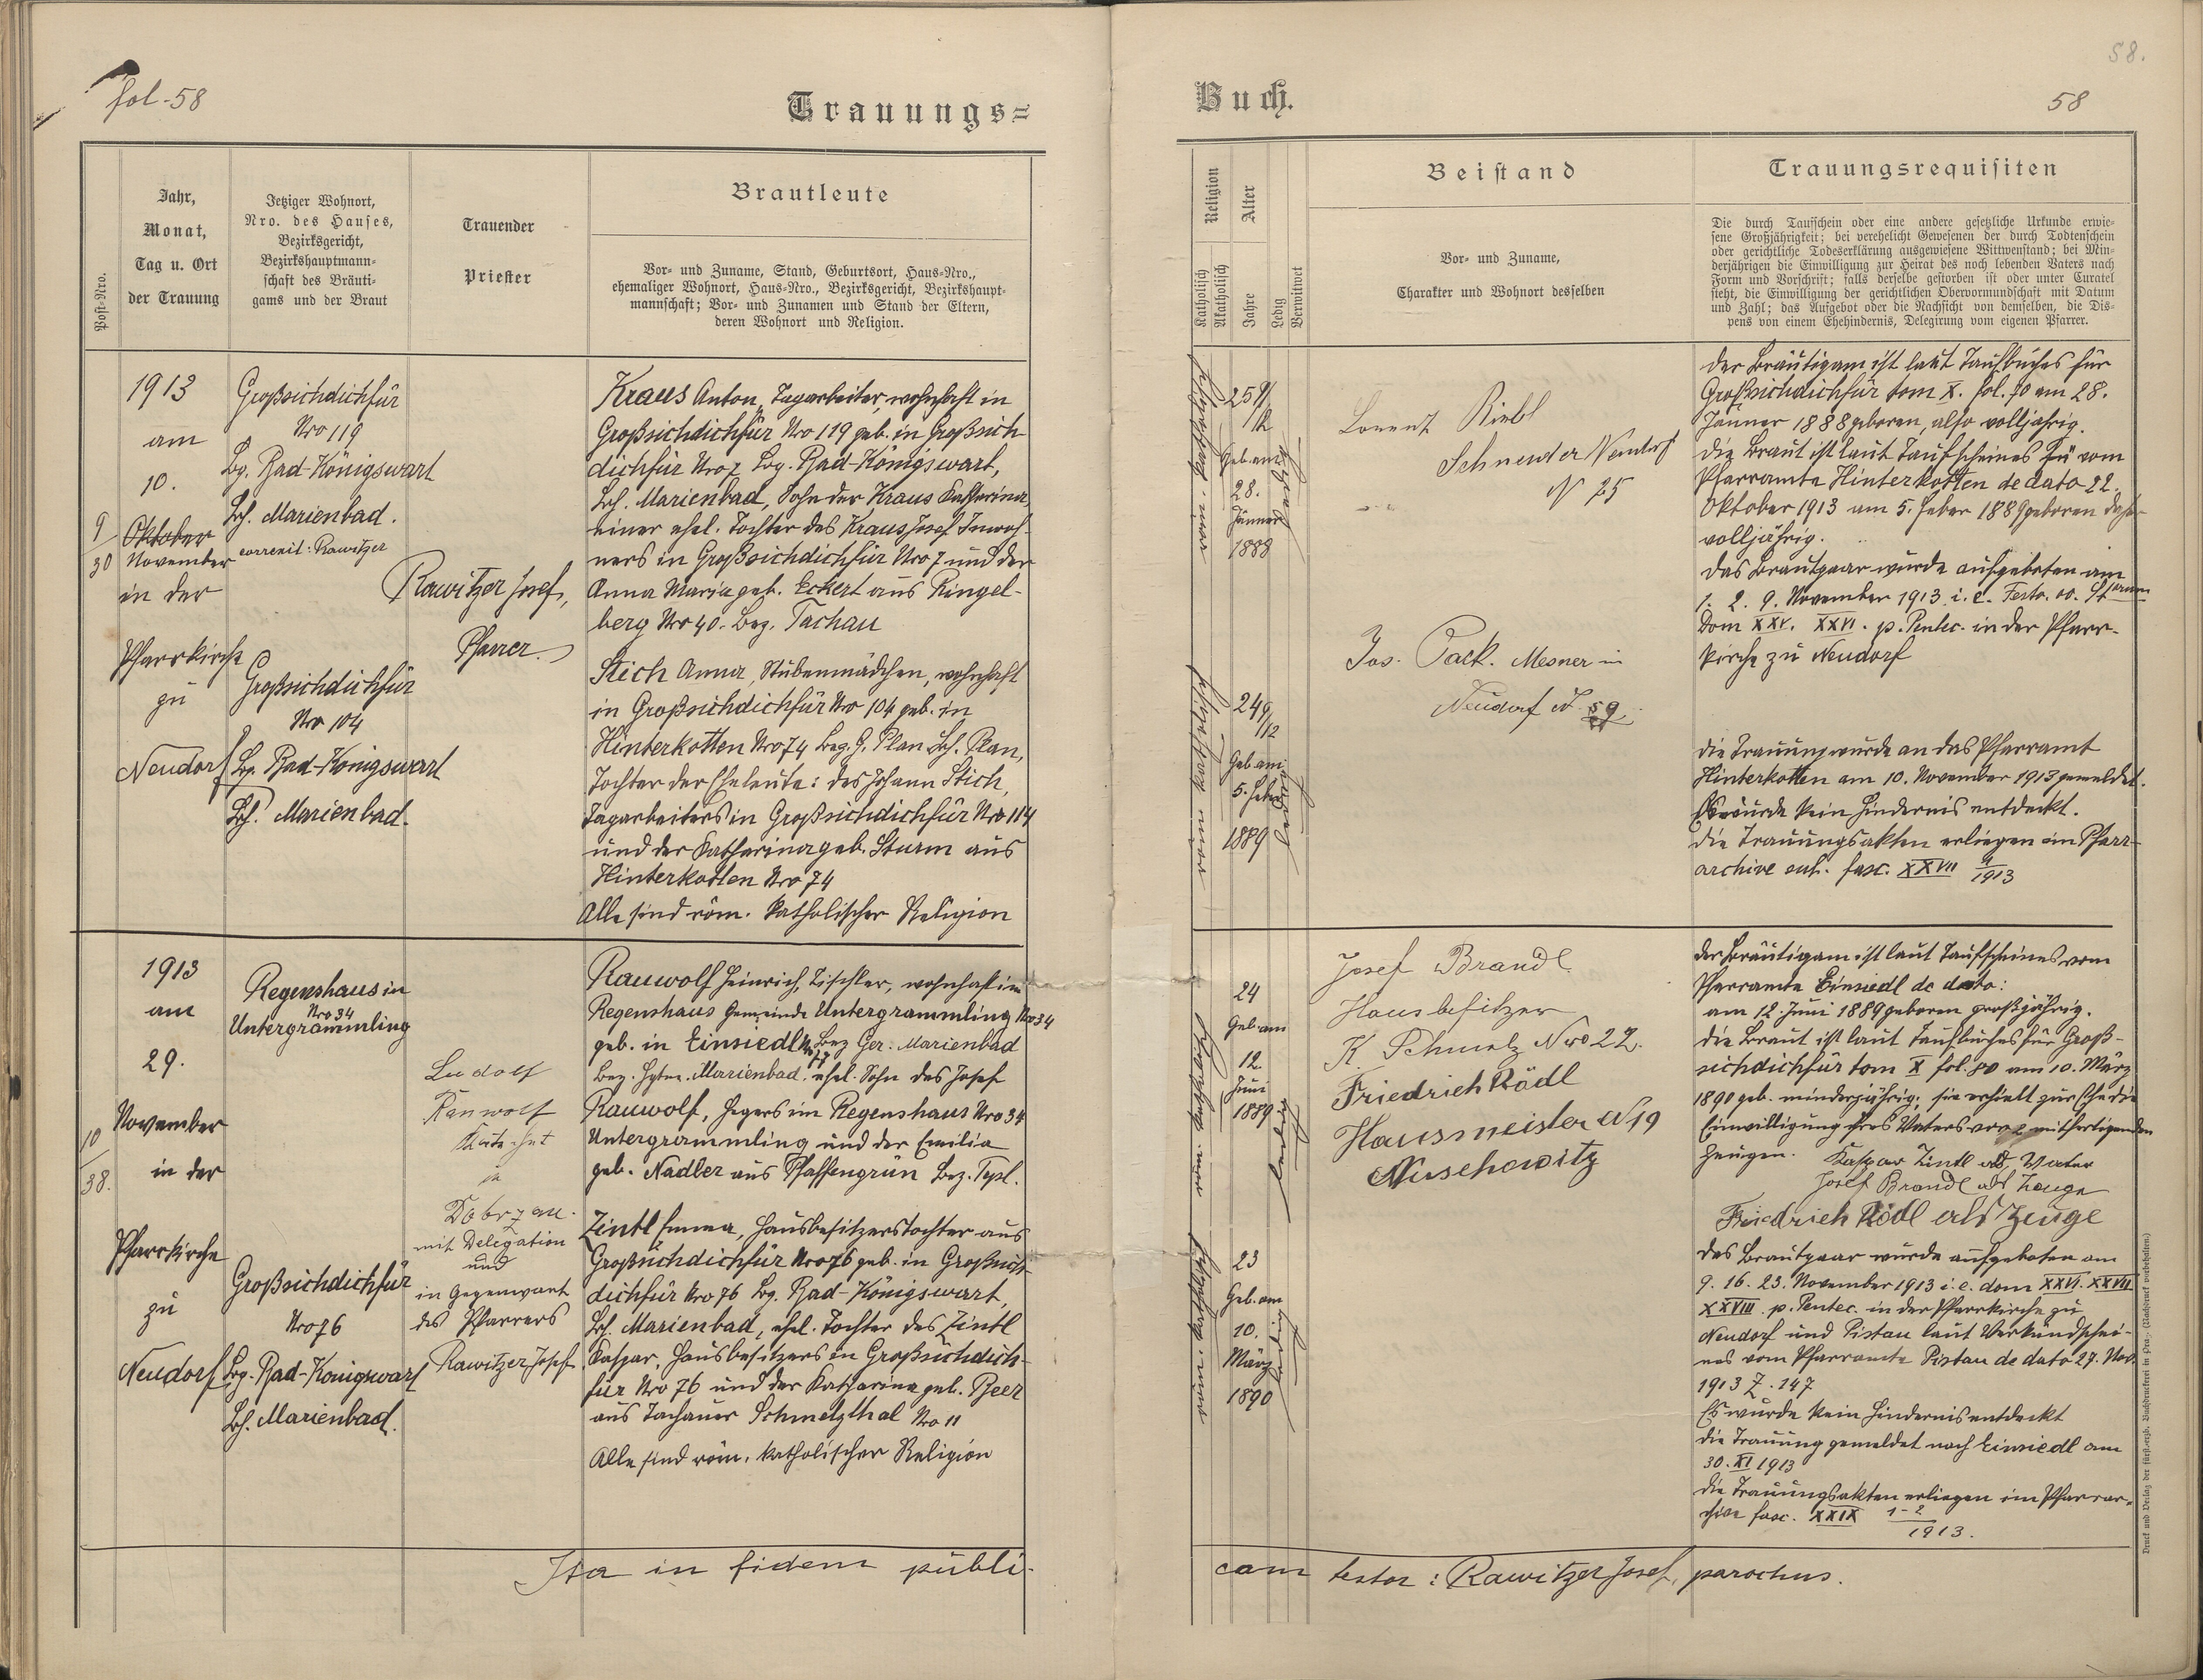 fol. 58
58.
58
Trauungs=
Buch.
Post-Nro.
Jahr,
Monat,
Tag u. Ort
der Trauung
Jetziger Wohnort,
Nro. des Hauses,
Bezirksgericht,
Bezirkshauptmann-
schaft des Bräuti-
gams und der Braut
Trauender
Priester
Brautleute
Vor- und Zuname, Stand, Geburtsort, Haus-Nro.,
ehemaliger Wohnort, Haus-Nro., Bezirksgericht, Bezirkshaupt-
mannschaft; Vor- und Zunamen und Stand der Eltern,
deren Wohnort und Religion.
Religion
Katholisch
Akatholisch
Alter
Jahre
Ledig
Verwitwet
Beistand
Vor- und Zuname,
Charakter und Wohnort desselben
Trauungsrequisiten
Die durch Taufschein oder eine andere gesetzliche Urkunde erwie-
sene Großjährigkeit; bei verehelicht Gewesenen der durch Todtenschein
oder gerichtliche Todeserklärung ausgewiesene Wittwenstand; bei Min-
derjährigen die Einwilligung zur Heirat des noch lebenden Vaters nach
Form und Vorschrift; falls derselbe gestorben ist oder unter Curatel
steht, die Einwilligung der gerichtlichen Obervormundschaft mit Datum
und Zahl; das Aufgebot oder die Nachsicht von demselben, die Dis-
pens von einem Ehehindernis, Delegirung vom eigenen Pfarrer.
9/30
1913
am
10.
Oktober
November
in der
Pfarrkirche
zu
Neudorf
Großsichdichfür
Nro 119
Bg. Bad-Königswart
Bh. Marienbad.
correxit: Rawitzer
Großsichdichfür
Nro 104
Bg. Bad-Königswart
Bh. Marienbad.
Rawitzer Josef,
Pfarrer.
Kraus Anton, Tagarbeiter, wohnhaft in
Großsichdichfür Nro 119 geb. in Großsich
dichfür Nro 7 Bg. Bad-Königswart,
Bh. Marienbad, Sohn der Kraus Katharina,
einer ehel. Tochter des Kraus Josef Inwoh-
ners in Großsichdichfür Nro 7 und der
Anna Maria geb. Eckert aus Ringel-
berg Nro 40. Bez. Tachau
Stich Anna, Stubenmädchen, wohnhaft
in Großsichdichfür Nro 104 geb. in
Hinterkotten Nro 74 Bez. G. Plan Bh. Plan,
Tochter der Eheleute: des Johann Stich,
Tagarbeiters in Großsichdichfür Nro 114
und der Katharina geb. Sturm aus
Hinterkotten Nro 74
Alle sind röm. katholischer Religion
25 9/12
Geb. am
28.
Jänner
1888
ledig
24 9/12
Geb am
5. Feber
1889
ledig
Lorenz
Schneider Neudorf
N 25
Jos. Pack. Mesner in
Neudorf N 59
der Bräutigam ist laut Taufbuches für
Großsichdichfür tom X. fol. 70 am 28.
Jänner 1888 geboren, also volljährig.
die Braut ist laut Taufscheines vom
Pfarramte Hinterkotten de dato 22.
Oktober 1913 am 5. Feber 1889 geboren daher
volljährig.
das Brautpaar wurde aufgeboten am
1. 2. 9. November 1913 i. e. Festo. oo. Storum
Dom XXV. XXVI. p. Pentec. in der Pfarr-
kirche zu Neudorf
die Trauung wurde an das Pfarramt
Hinterkotten am 10. November 1913 gemeldet.
Es wurde kein Hindernis entdeckt.
die Trauungsakten erliegen im Pfarr-
archive sub. fasc. XXVII 4/1913
10/38.
1913
am
29.
November
in der
Pfarrkirche
zu
Neudorf
Regenshaus in
Nro 34
Untergrammling
Großsichdichfür
Nro 76
Bg. Bad-Königswart
Bh. Marienbad.
Ludolf
Rauwolf
Katechet
in
Dobrzan.
mit Delegation
und
in Gegenwart
des Pfarrers
Rawitzer Josef
Rauwolf Heinrich, Tischler, wohnhaft im
Regenshaus Gemeinde Untergrammling Nro 34
geb. in Einsiedl Bez Ger. Marienbad
Bez. Hptm. Marienbad, ehel. Sohn des Josef
Rauwolf, Hegers im Regenshaus Nro 34
Untergrammling und der Emilia
geb. Nadler aus Pfaffengrün Bez. Tepl.
Zintl Emma, Hausbesitzerstochter aus
Großsichdichfür Nro 76 geb. in Großsich-
dichfür Nro 76 Bg. Bad-Königswart,
Bh. Marienbad, ehel. Tochter des Zintl
Kaspar, Hausbesitzers in Großsichdich-
für Nro 76 und der Katharina geb. Beer
aus Tachauer Schmelzthal Nro 11
Alle sind röm. katholischer Religion
24
Geb. am
12.
Juni
1889
ledig
23
Geb. am
10.
März
1890
ledig
Josef Brandl
Hausbesitzer
K Schmelz Nro 22.
Friedrich Rödl
Hausmeister N 19
Kuschowitz
der Bräutigam ist laut Taufscheines vom
Pfarramte Einsiedl de dato:
am 12. Juni 1889 geboren großjährig.
die Braut ist laut Taufbuches für Groß-
sichdichfür tom X fol. 80 am 10. März
1890 geb. minderjährig; sie erhielt zur Ehe die
Einwilligung ihres Vaters vor 2 mitfertigenden
Zeugen. Kaspar Zintl als Vater
Josef Brandl als Zeuge
Friedrich Rödl als Zeuge
das Brautpaar wurde aufgeboten am
9. 16. 23. November 1913 i. e. dom XXVI. XXVII
XXVIII p. Pentec. in der Pfarrkirche zu
Neudorf und Pistau laut Verkündschei-
nes vom Pfarramte Pistau de dato 27. Nov.
1913 Z. 147
Es wurde kein Hindernis entdeckt
die Trauung gemeldet nach Einsiedl am
30. XI 1913
die Trauungsakten erliegen im Pfarrar-
chive fasc. XXIX 1-2/1913.
Ita in fidem publi-
cam testor: Rawitzer Josef, parochus.